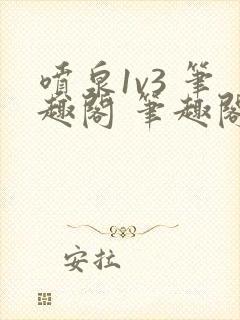 噴泉1v3 筆
趣閣 筆趣閣
安拉